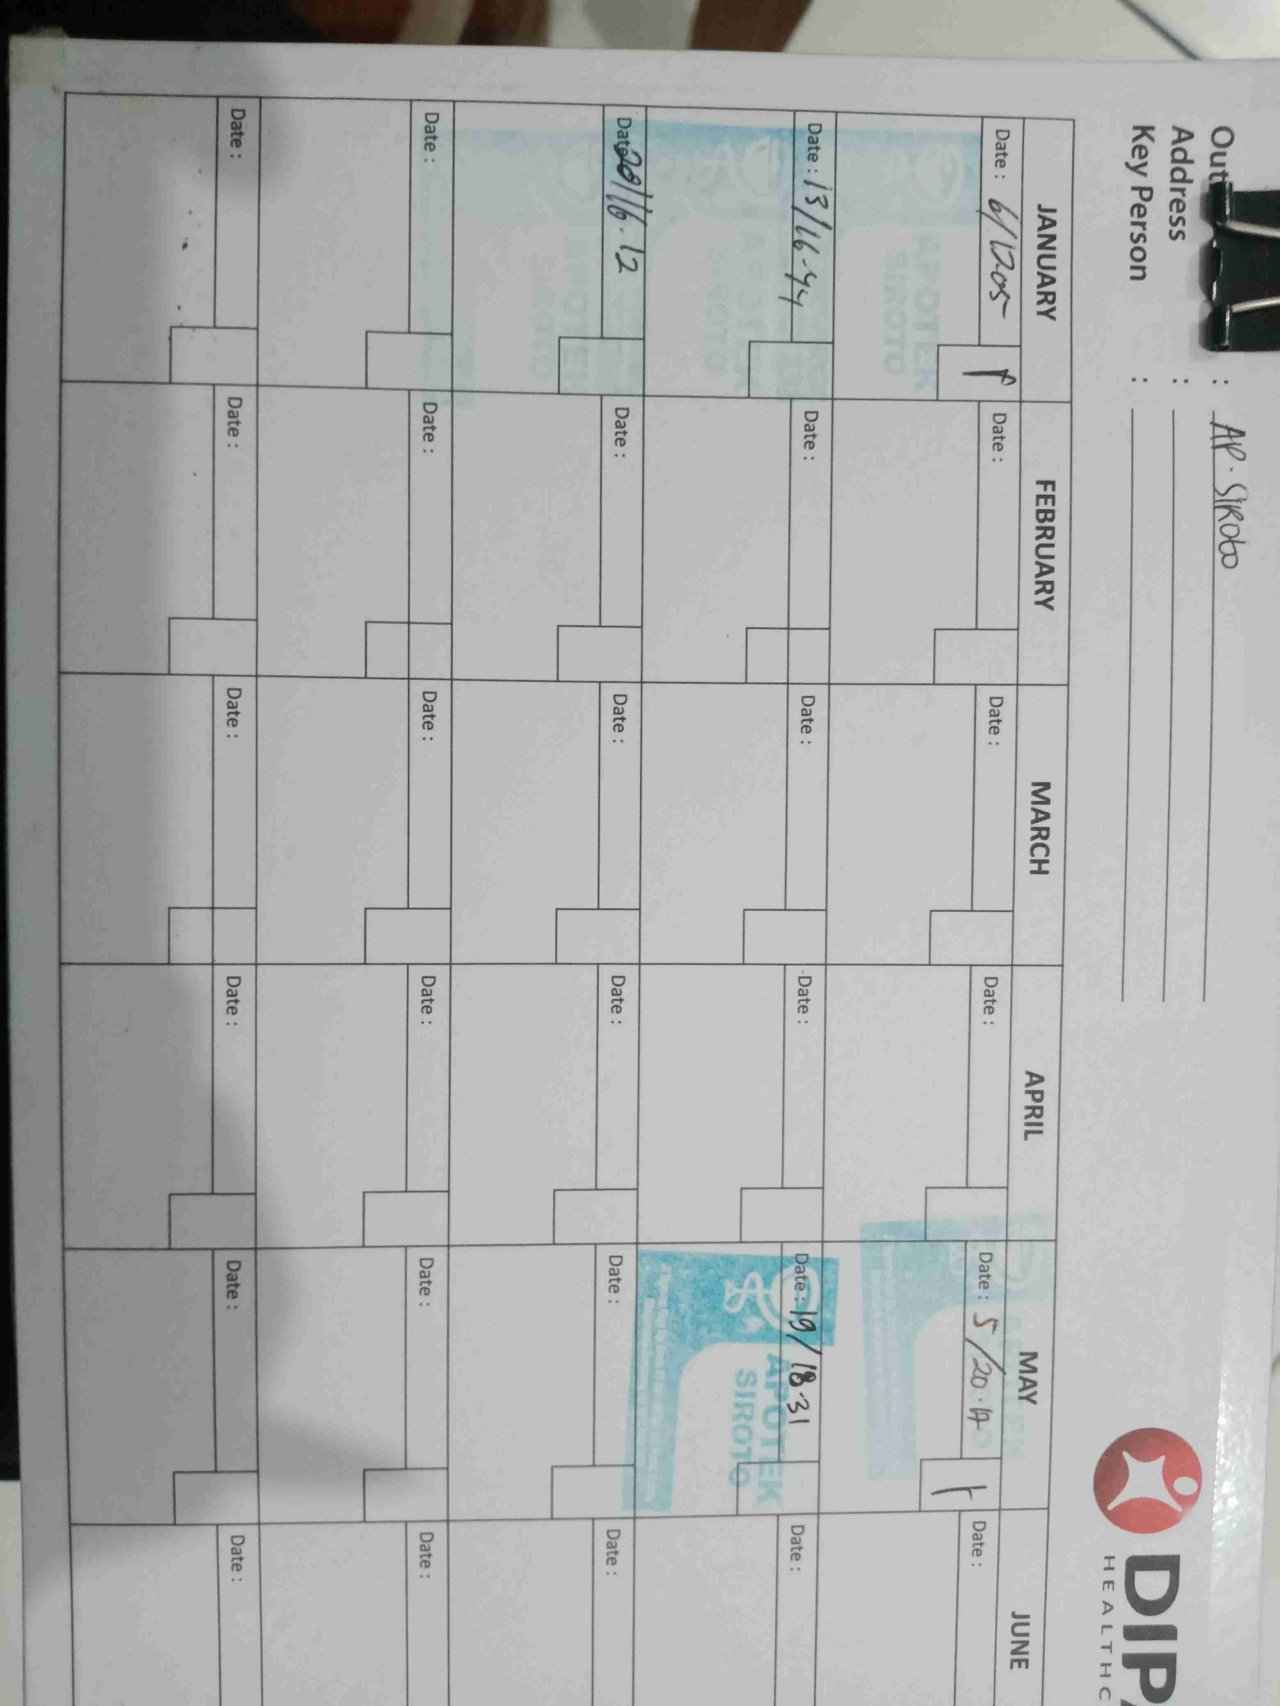 : AP. SIROTO
Address :
Key Person :
DIP
HEALTHC
JANUARY FEBRUARY MARCH APRIL MAY JUNE
Date : 6/12.05 Date : Date : Date : Date : 5/20.17 Date :
APOTEK
SIROTO
Date : 13/16.44 Date : Date : Date : Date : 19/18.31 Date :
APOTEK
SIROTO
Date 20/16.12 Date : Date : Date : Date : Date :
APOTEK
SIROTO
Date : Date : Date : Date : Date : Date :
Date : Date : Date : Date : Date : Date :